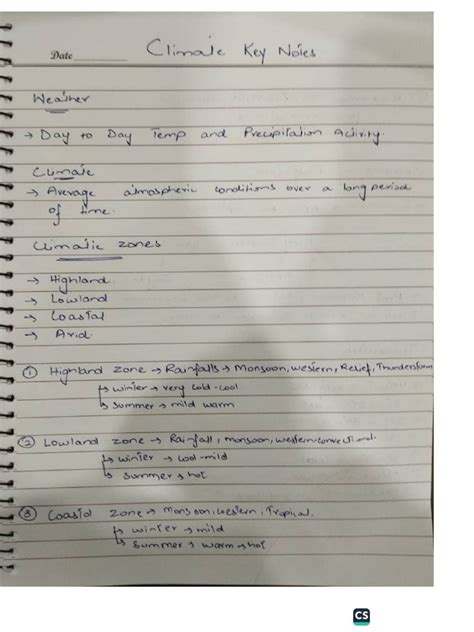 Date
Climate Key Notes
Weather
→ Day to Day Temp and Precipitation Activity.
Climate
→ Average atmospheric conditions over a long period
of time.
Climatic zones
→ Highland
→ Lowland
→ Coastal
→ Arid.
① Highland zone → Rainfalls → Monsoon, western, Relief, Thunderstorm
↳ winter → very cold-cool
↳ summer → mild warm
② Lowland zone → Rainfall, monsoon, western convectional.
↳ winter → cool-mild
↳ summer → hot
③ Coastal zone → Monsoon, western, Tropical.
↳ winter → mild
↳ summer → warm → hot
CS